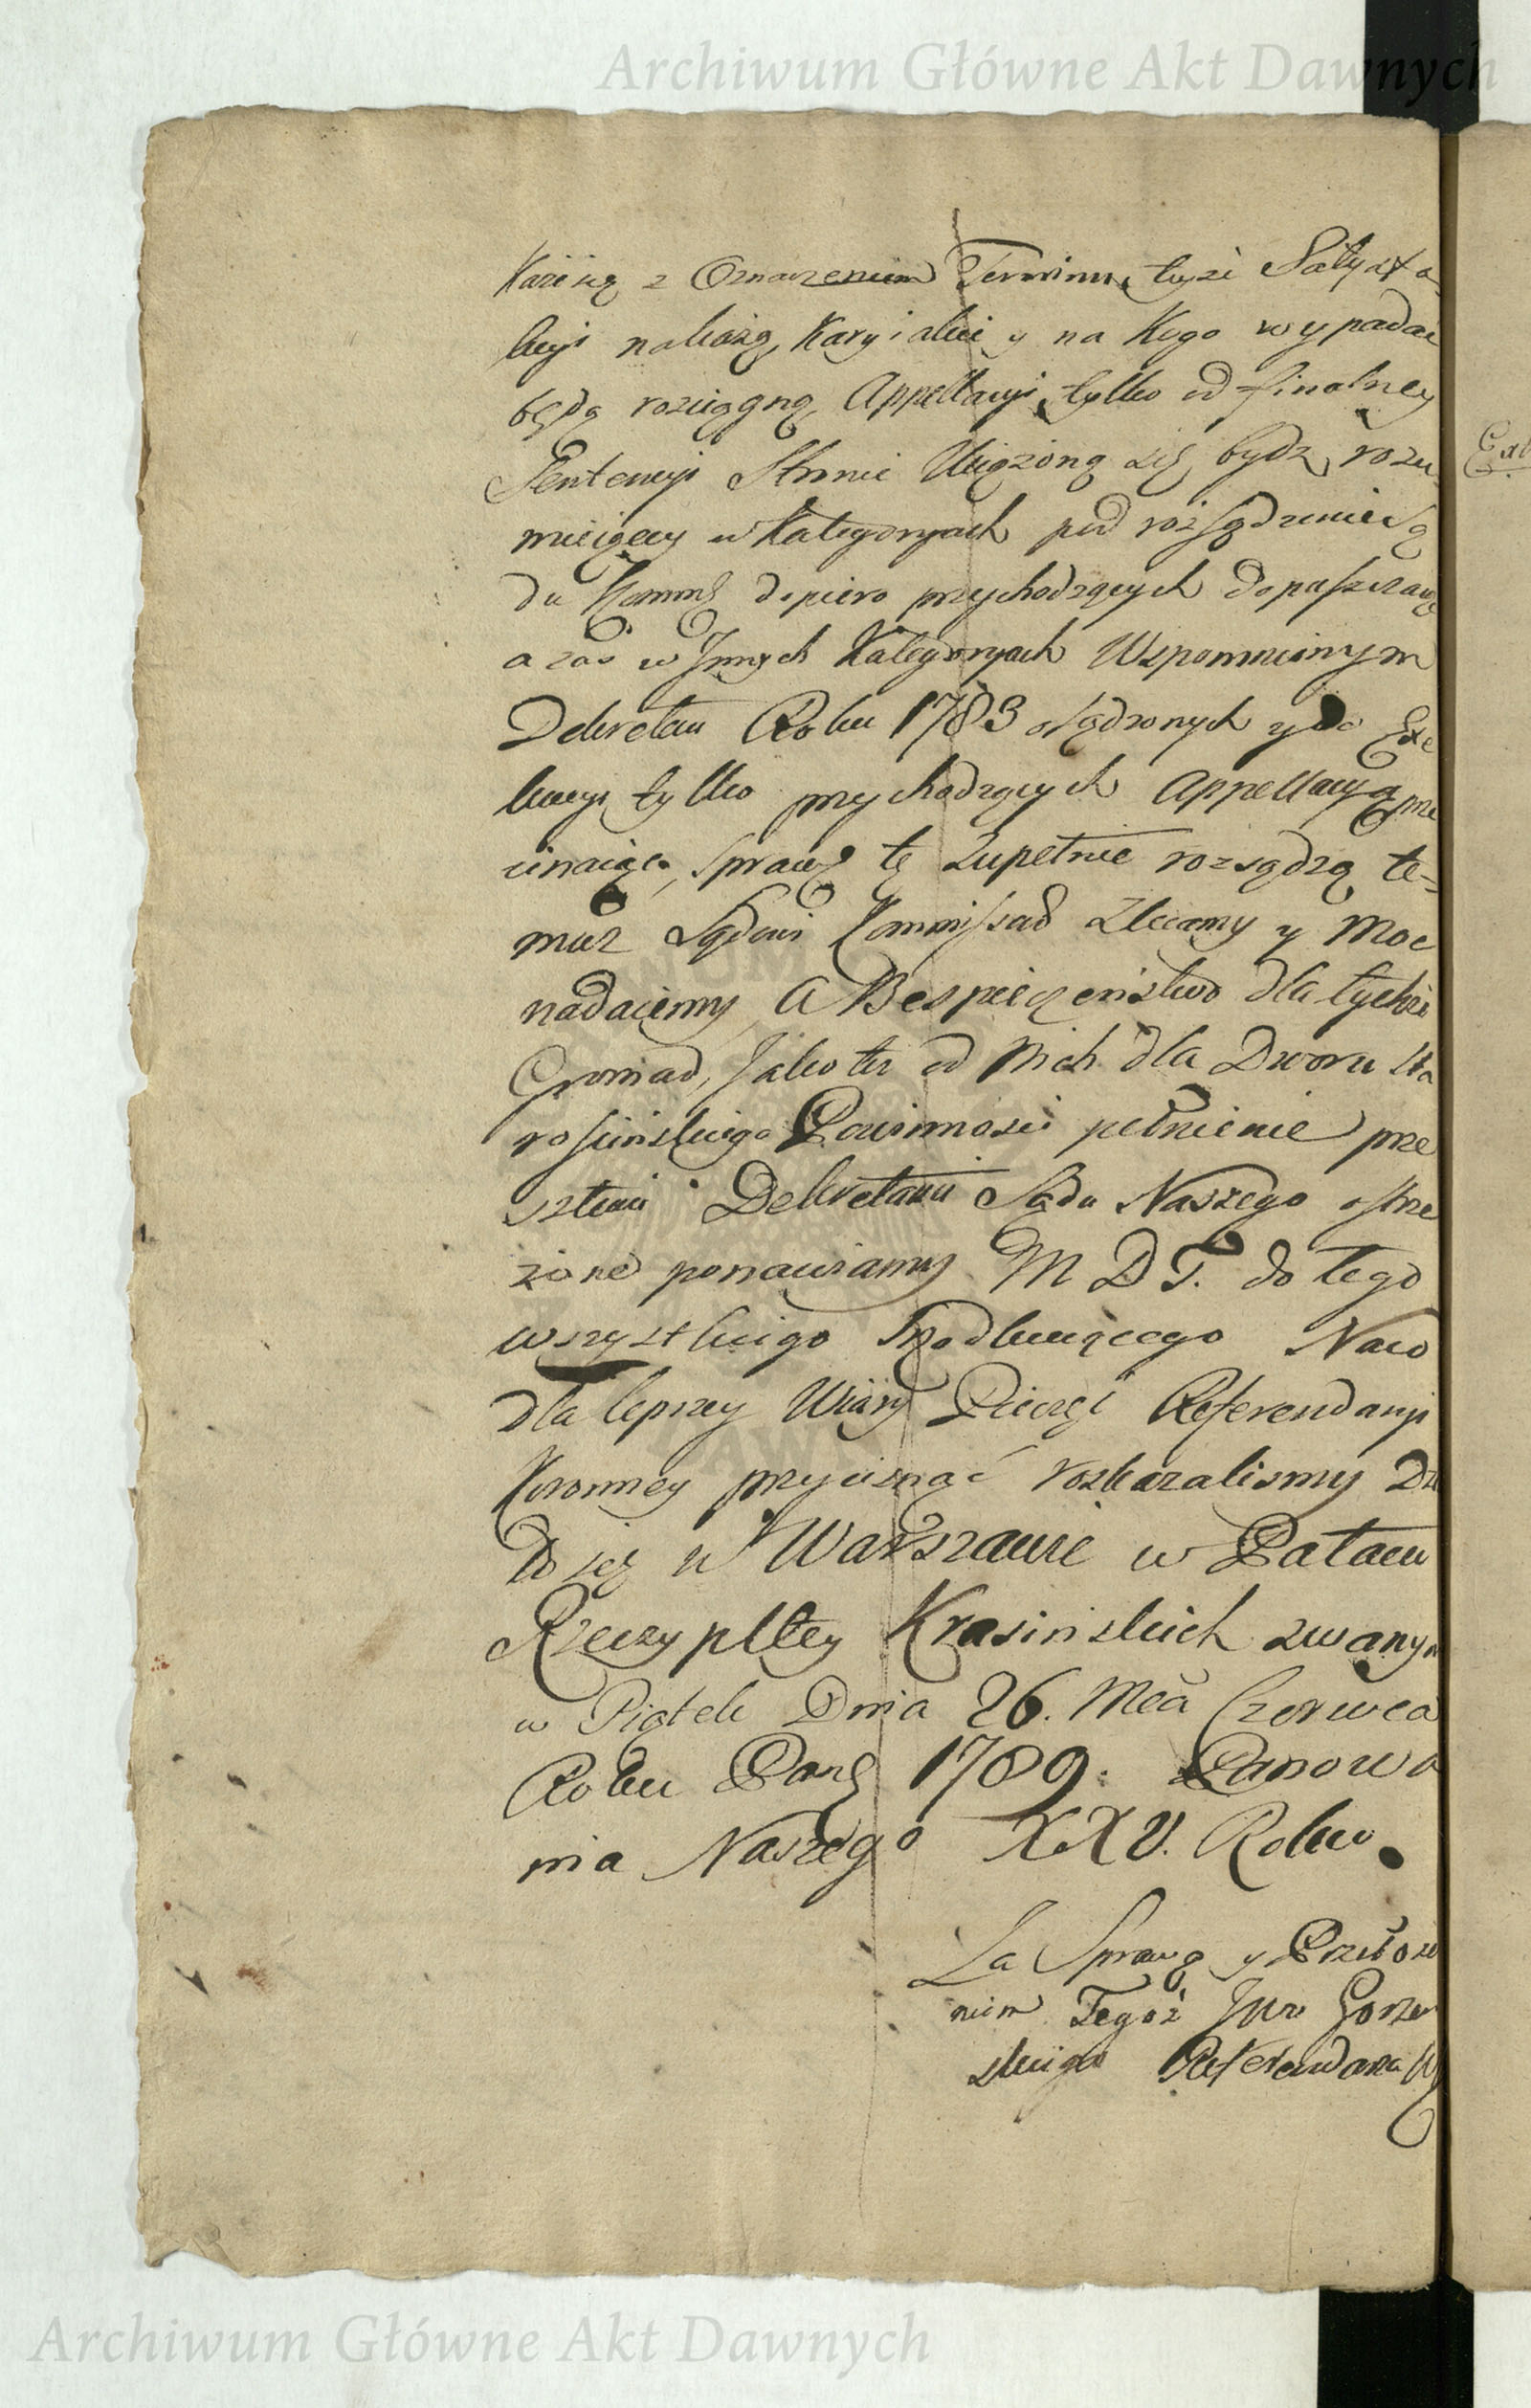 Archiwum Główne Akt Dawnych
Każe się z Oznaczenim Terminu, tyże Satysfa
kcyi nakażą, Kary iakie y na Kogo wypadać
będą rozciągną, Appellacyi tylko od finalney
Sentencyi Stronie Uciążoną się bydź rozu
mieiącey w Kategoryach pod rozsądzenie Są
du Komms dopiero przychodzących dopuszczaiąc
a zaś w Innych Kategoryach Wspomnionym
Dekretem Roku 1783 osądzonych y do Exe
kucyi tylko przychodzących Appellacyą prze
cinaiąc, sprawę tę Zupełnie rozsądzą te-
muż Sądowi Kommissars Zlecamy y Moc
nadaiemy, A Bespieczeństwo dla tychże
Gromad, Jako też od Nich dla Dworu Sta
rościńskiego Powinności pełnienie prze
szłemi Dekretami Sądu Naszego ostrze
żone ponawiamy M D T. do tego
wszystkiego Naco
dla lepszey Wiary Pieczęć Referendaryi
Koronney przycisnąć rozkazaliśmy Dzi
ało się w Warszawie w Pałacu
Rzeczypltey Krasińskich zwanym
w Piątek Dnia 26. Mca Czerwca
Roku Pańs 1789. Panowa
nia Naszego XXV. Roku.
Za Sprawą y Przełoże
niem Tegoż Jww Gorzeń
skiego Referendarza W
Archiwum Główne Akt Dawnych